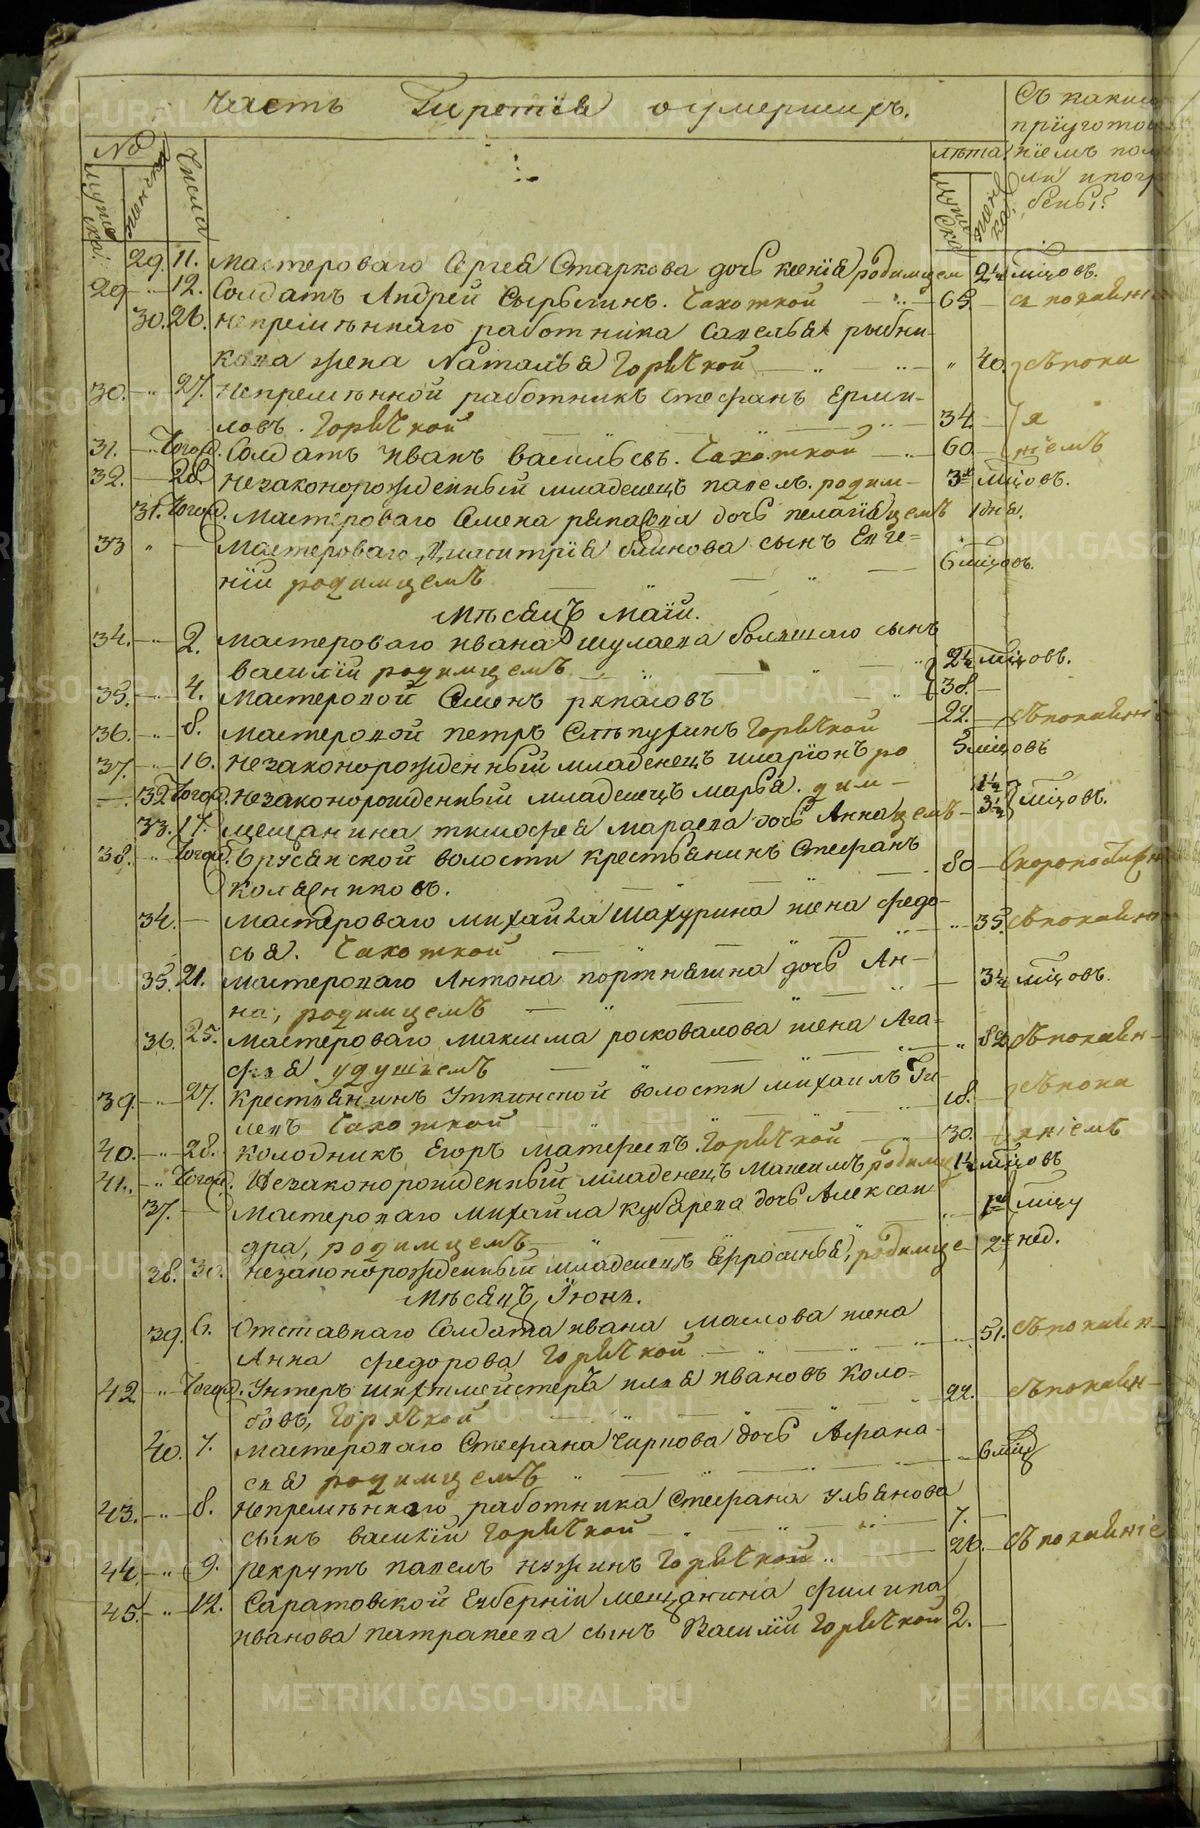 Часть Третія о умершихъ.
Съ каким
пріугото
№ Числа лѣта ніемъ пом
муж женска муж женска ли и погр
бены?
29. 11. Мастероваго Сергея Старкова дочь ксенія родимцем 2½ мцовъ.
29 12. Солдатъ Андрей Сырыгинъ. Чахоткой 63. съ покаяні
30. 26. непремѣннаго работника савелья рыбни-
кова жена Наталья Горячкой 40. съ пока
30. 27. непремѣнной работникъ стефанъ Ерми-
ловъ. Горячкой 34. я
31. Тогожд. Солдатъ Иванъ Васильевъ. Чахоткой 60 ніемъ
32. 28. незаконорожденный младенецъ павелъ. родим- 3х мцовъ.
31. Тогожд. Мастероваго Семена рѣпасова дочь пелагія цемъ 1 дня.
33 Мастероваго Димитрія блинова сынъ Евге-
ній родимцемъ 6 мцовъ.
Мѣсяцъ Маій.
34. 2. мастероваго ивана шулаева большаго сынъ
василій родимцемъ 2½ мцовъ.
35. 4. Мастеровой Семенъ рѣпасовъ 38.
36. 8. мастеровой петръ Слѣпухинъ Горячкой 22. съ покаяні
37. 16. незаконорожденный младенецъ иларіонъ ро 5 мцовъ
32 Тогожд. незаконорожденный младенецъ марья. дим- 1½ мцовъ.
33. 17. мещанина тимофея мараева дочь Анна цемъ 3½
38. Тогожд. волости крестьянинъ Стефанъ
колясниковъ. 80 Скоропостижн
34. мастероваго михайла шахурина жена федо-
сья. Чахоткой 35. съ покаяні
35. 21. мастероваго Антона портнягина дочь Ан-
на, родимцемъ 3½ мцовъ.
36. 25. мастероваго максима росковалова жена Ага-
фія удушьемъ 82 съ покаян-
39. 27. крестьянинъ Уткинской волости михаилъ Ги
левъ Чахоткой 18. съ пока
40. 28. колодникъ Егоръ матфеевъ. Горячкой 30. яніемъ
41. Тогожд. Незаконорожденный младенецъ Максимъ родимц 1½ мцовъ
37. мастероваго михайла кубарева дочь Алексан
дра, родимцемъ 1го мцу
38. 30. незаконорожденный младенецъ Ефросинья, родимце 2х нед.
мѣсяцъ Іюнь.
39. 6. Отставнаго Солдата ивана маслова жена
Анна федорова Горячкой 51. съ покаян-
42 Тогожд. Унтеръ шихтмейстеръ илья ивановъ коло-
бовъ, Горячкой 22. съ покаян-
40. 7. мастероваго Стефана Чиркова дочь Афана-
сія родимцемъ 6 мцъ
43. 8. непремѣннаго работника Стефана ульянова
сынъ василій Горячкой 7.
44. 9. рекрутъ павелъ нужинъ Горячкой 26. съ покаяніе
45. 12. Саратовской Губерніи мещанина филипа
иванова патракеева сынъ Василій Горячкой 2.
METRIKI.GASO-URAL.RU